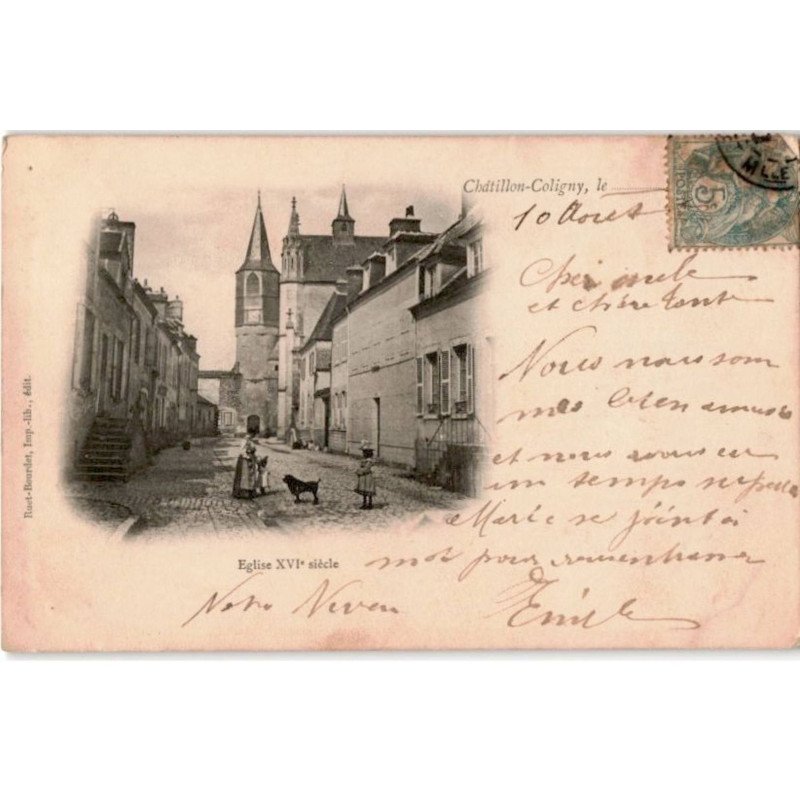 Châtillon-Coligny, le
10 Août
Cher oncle
et chère tante
Nous nous som
mes bien amusés
et nous avons eu
un temps superbe
Marie se joint à
moi pour
Votre Neveu
Emile
Eglise XVIᵉ siècle
Ruet-Bourdet, Imp.-lib., édit.
5